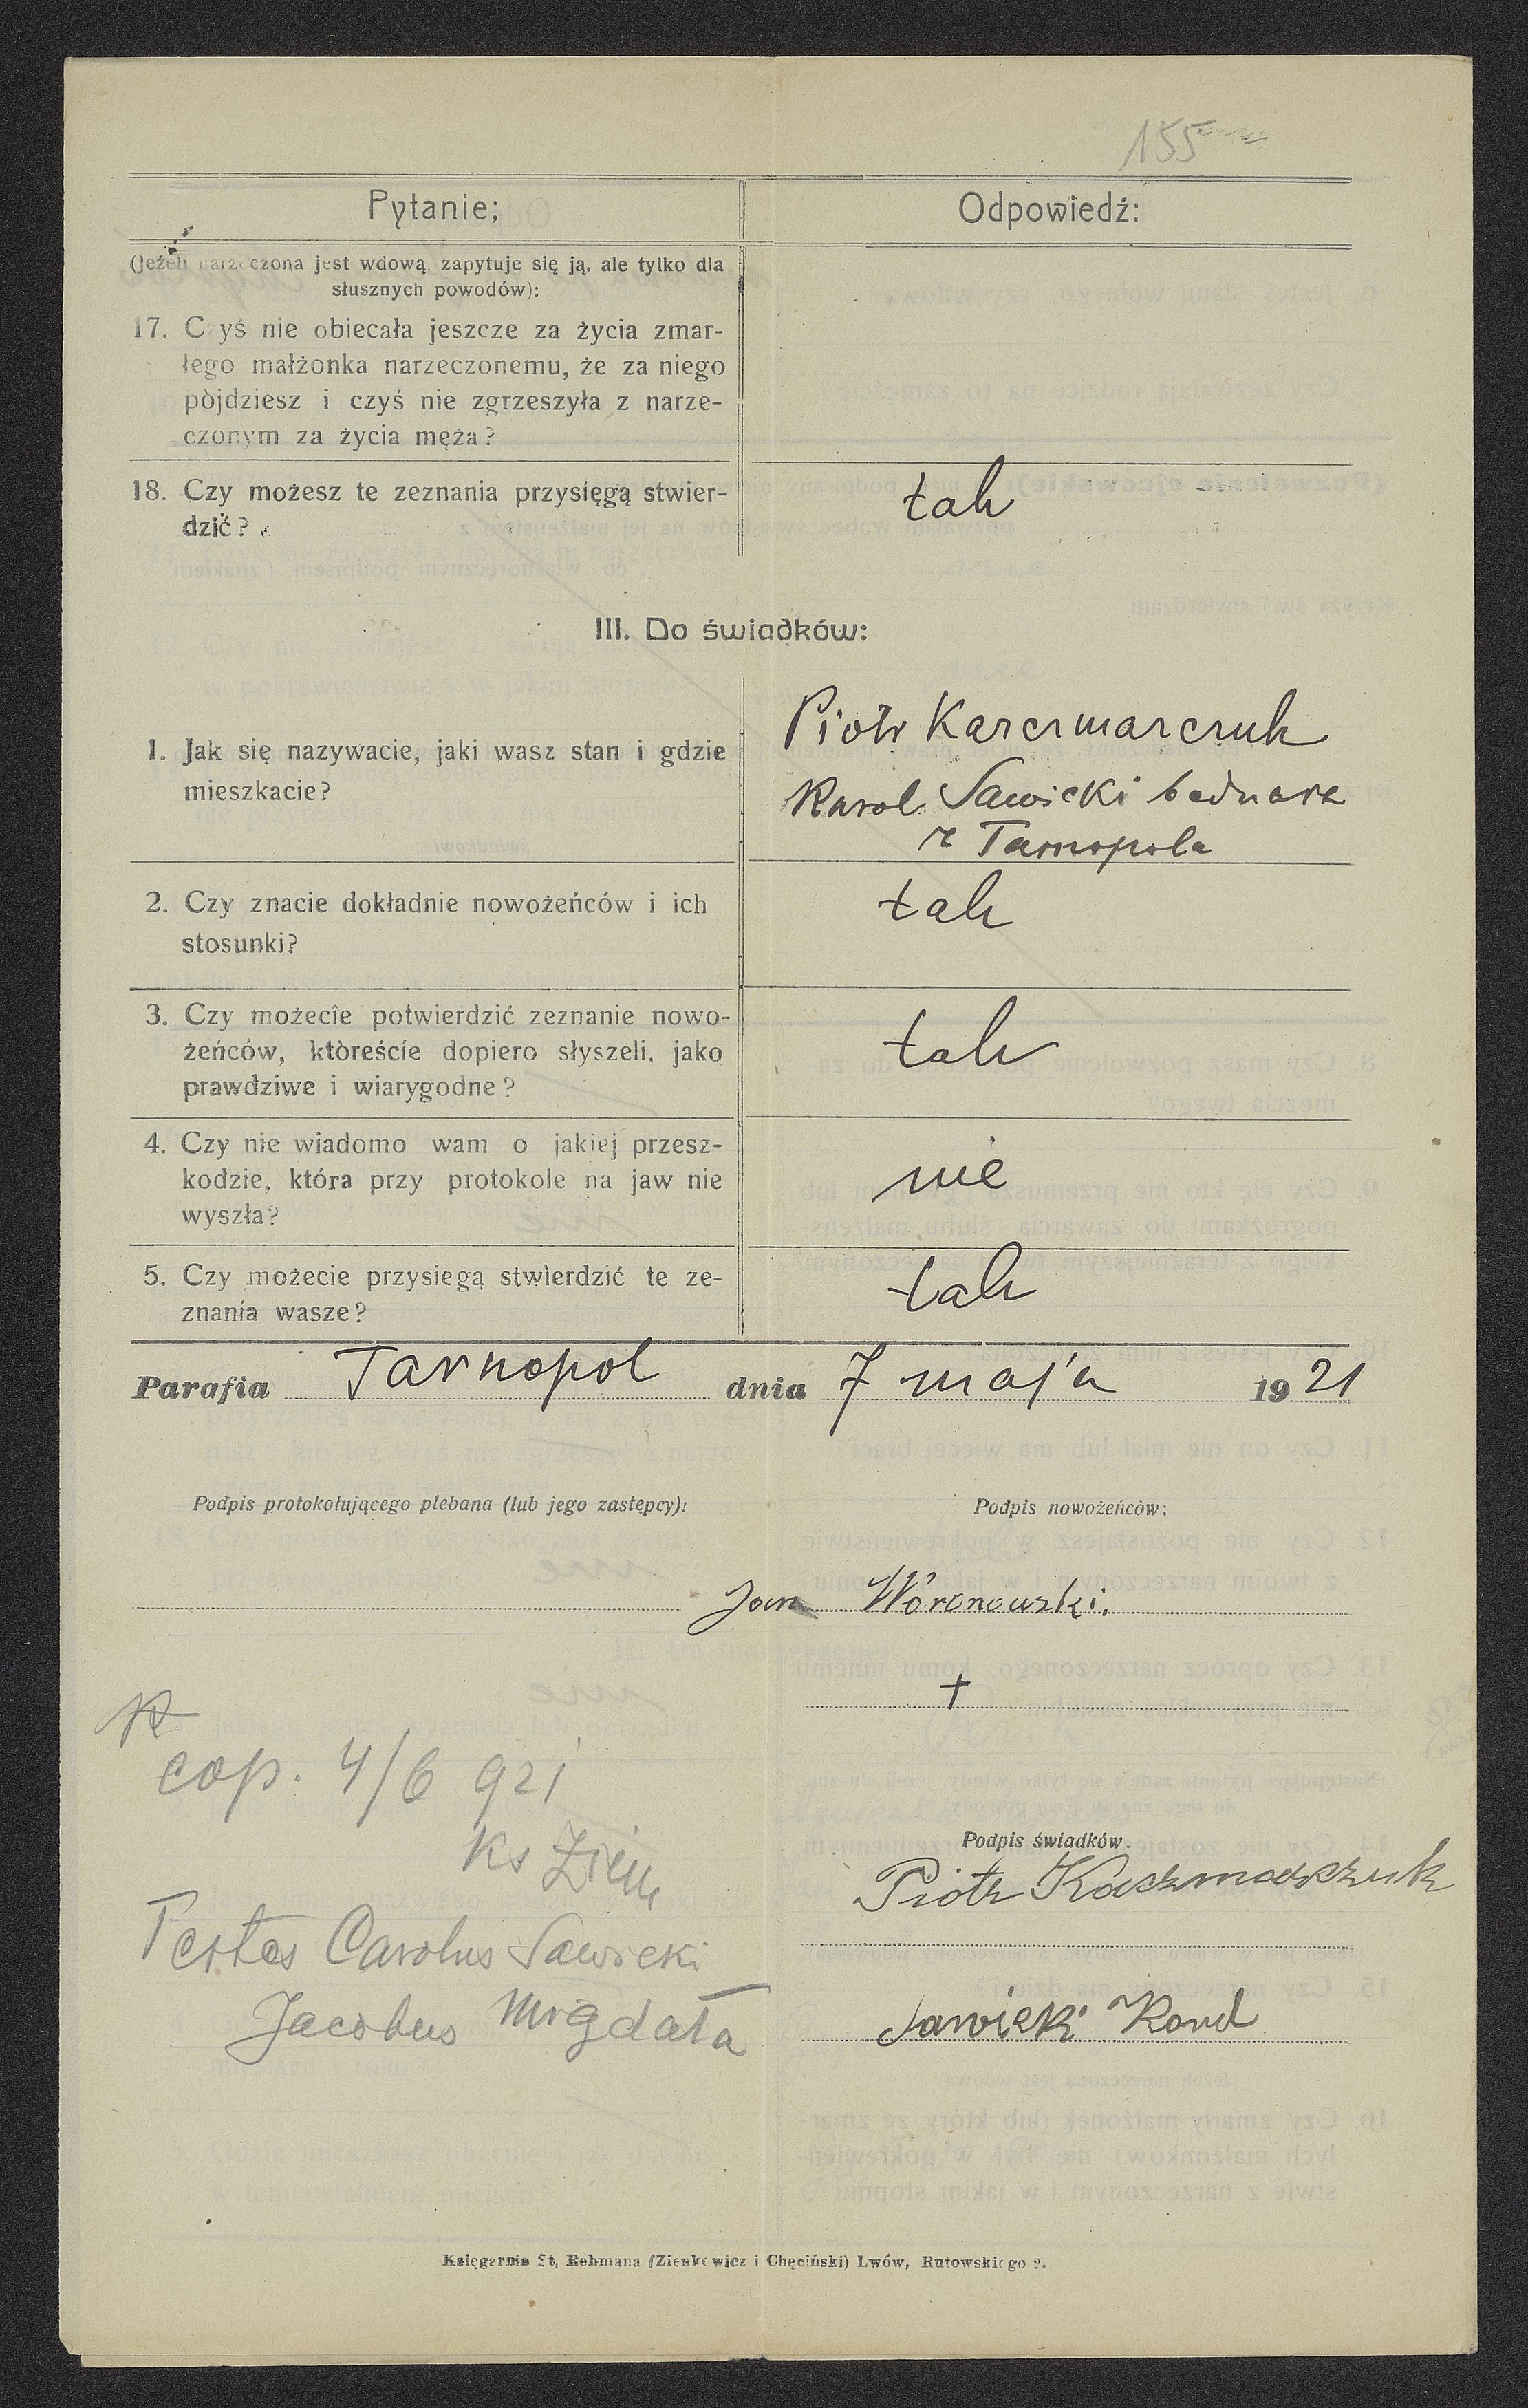 155
Pytanie; Odpowiedź:
(Jeżeli narzeczona jest wdową, zapytuje się ją, ale tylko dla
słusznych powodów):
17. C yś nie obiecała jeszcze za życia zmar-
łego małżonka narzeczonemu, że za niego
pòjdziesz i czyś nie zgrzeszyła z narze-
czonym za życia męża?
18. Czy możesz te zeznania przysięgą stwier-
dzić?
tak
III. Do świadków:
1. Jak się nazywacie, jaki wasz stan i gdzie
mieszkacie?
Piotr Karczmarczuk
Karol Sawicki bednarz
z Tarnopola
2. Czy znacie dokładnie nowożeńców i ich
stosunki?
tak
3. Czy możecie potwierdzić zeznanie nowo-
żeńców, ktòreście dopiero słyszeli, jako
prawdziwe i wiarygodne?
tak
4. Czy nie wiadomo wam o jakiej przesz-
kodzie, która przy protokole na jaw nie
wyszła?
nie
5. Czy możecie przysiegą stwierdzić te ze-
znania wasze?
tak
Parafia Tarnopol dnia 7 maja 1921
Podpis protokołującego plebana (lub jego zastępcy): Podpis nowożeńców:
Jan Woronowski.
+
cop. 4/6 921
Ks
Podpis świadków.
Piotr Kaczmarczuk
Testes Carolus Sawicki
Jacobus Migdała
Sawicki Karol
Księgarnia St, Rehmana (Zienkowicz i Chęciński) Lwów, Rutowskiego 2.